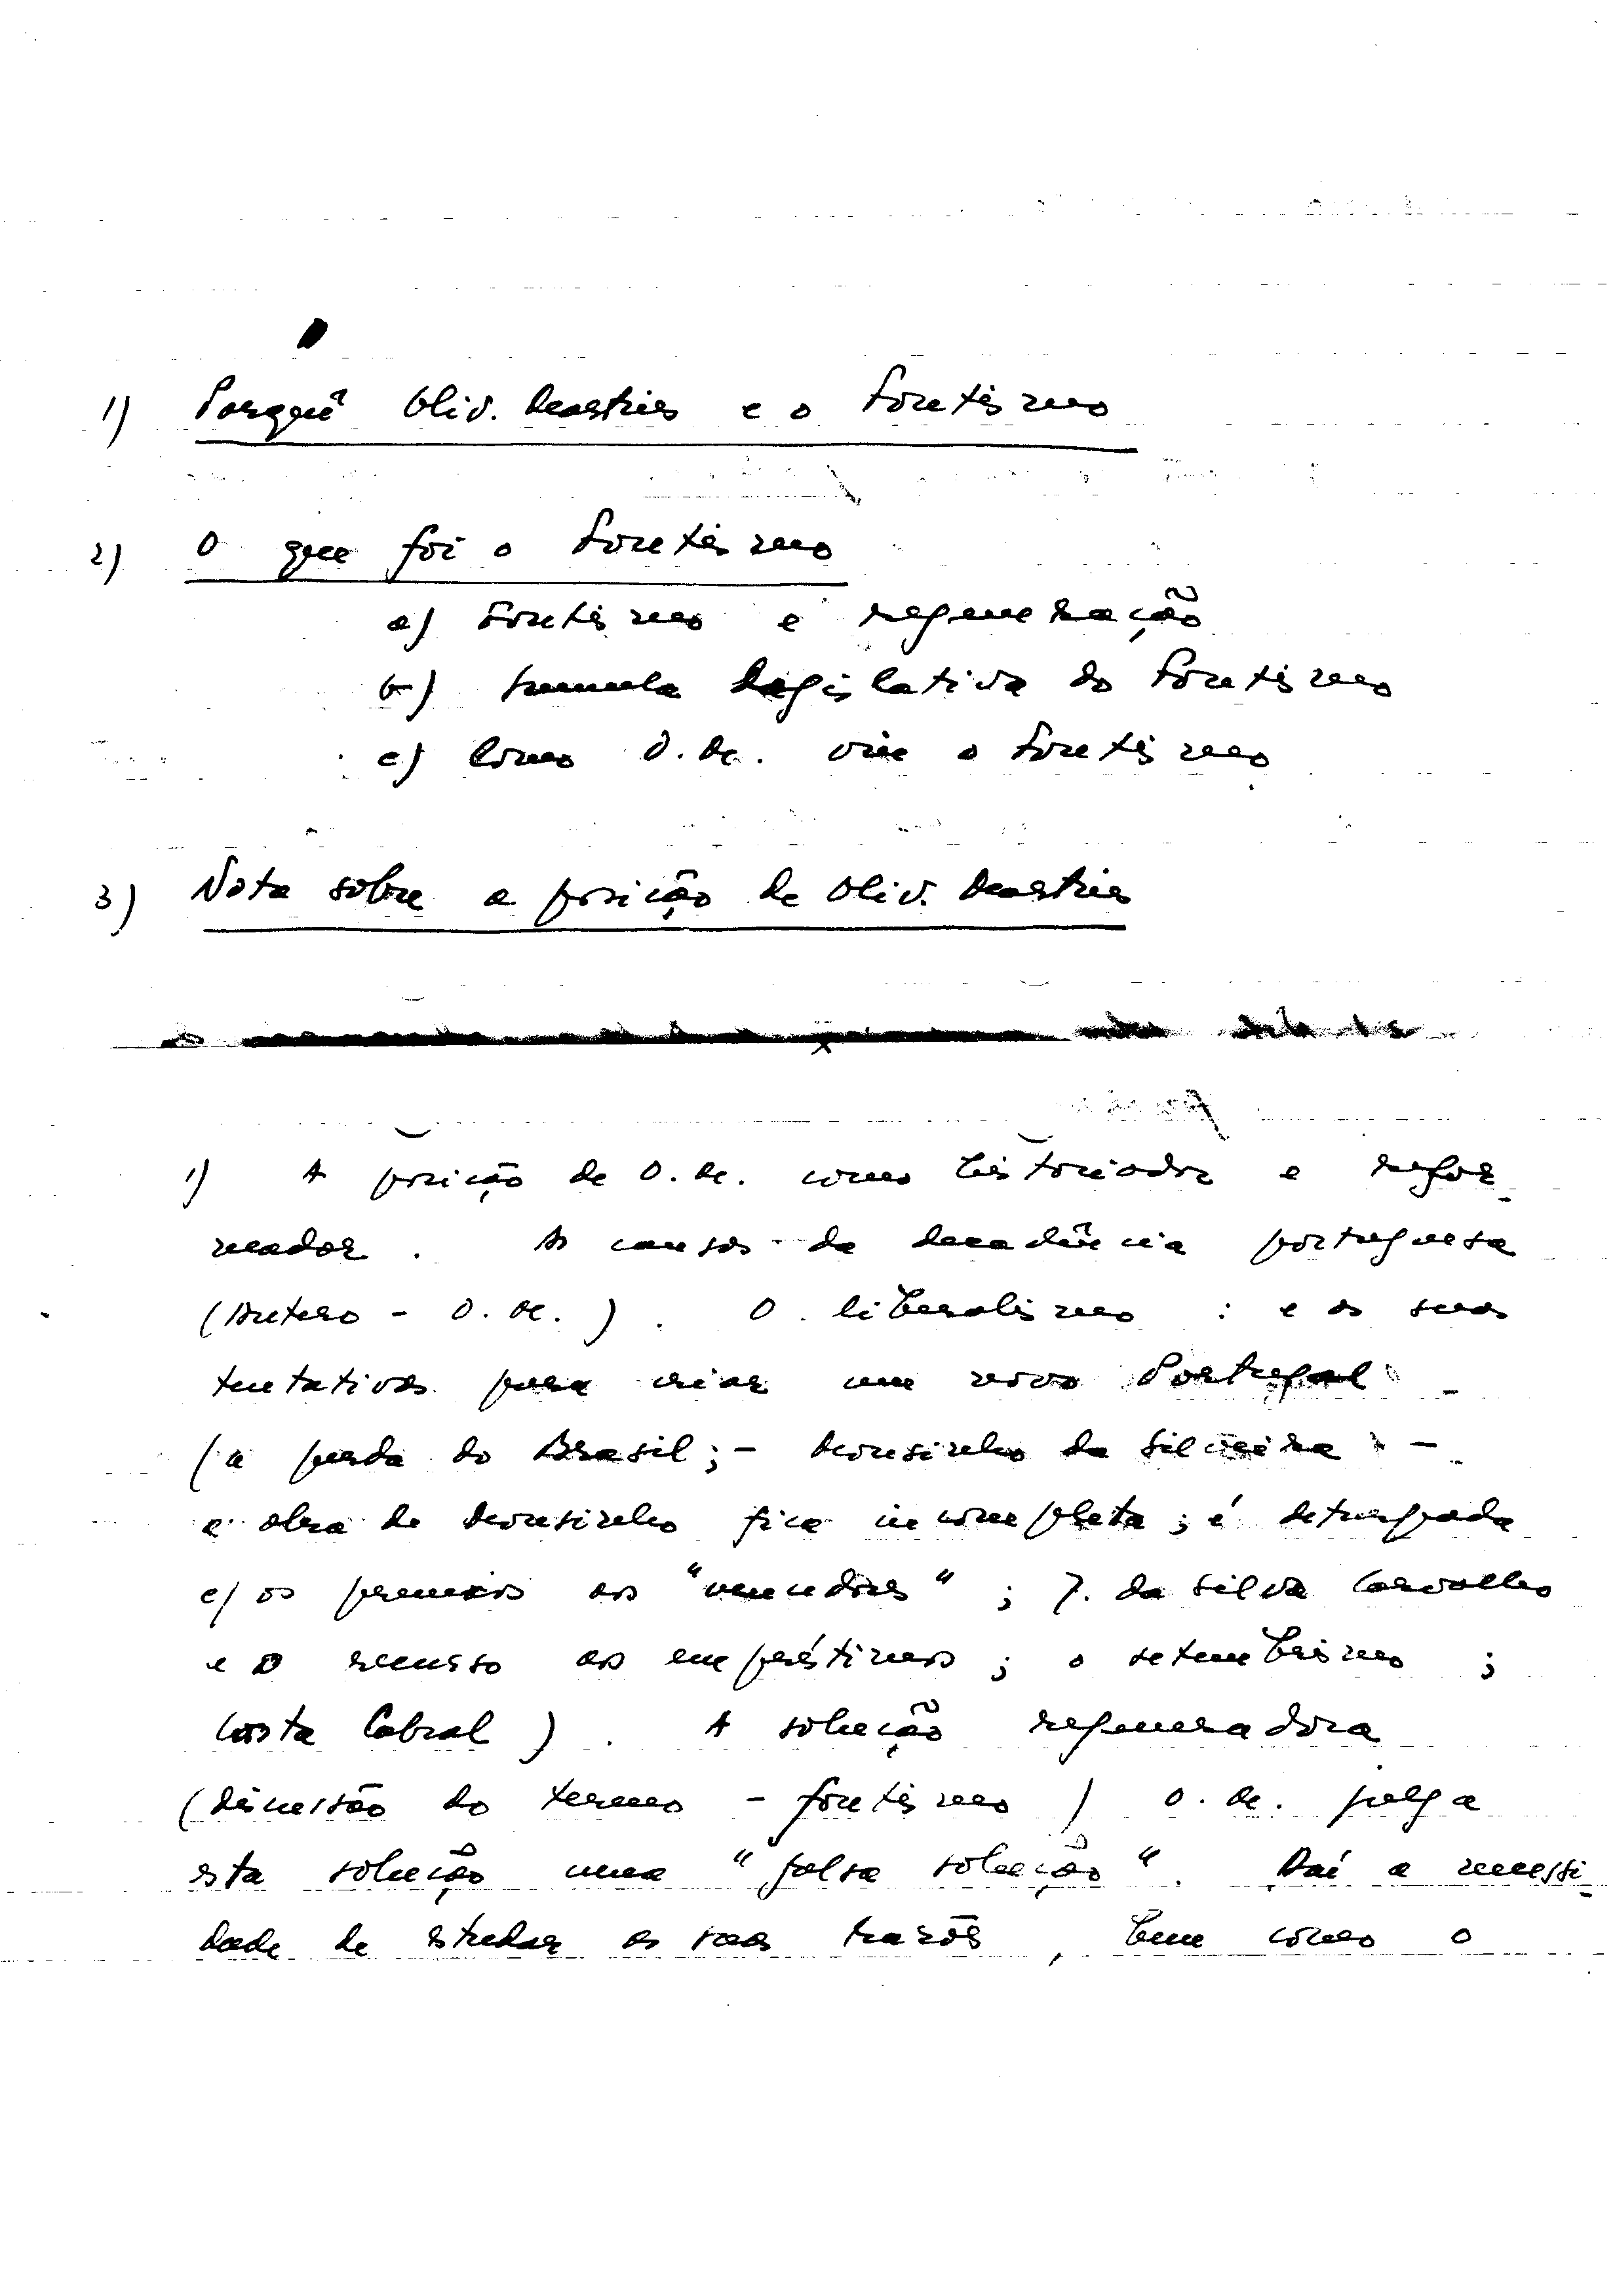 1) Porquê Oliv. Martins e o Fontismo
2) O que foi o Fontismo
a) Fontismo e regeneração
b) Sumula legislativa do Fontismo
c) Como O. M. viu o Fontismo
3) Nota sobre a posição de Oliv. Martins
1) A posição de O. M. como historiador e refor
mador. As causas da decadência portuguesa
(Antero - O. M.). O liberalismo : e as suas
tentativas para criar um novo Portugal
(a perda do Brasil; - Mousinho da Silveira -
a obra de Mousinho fica incompleta; é deturpada
c/ os premios aos "vencedores"; J. da Silva Carvalho
e o recurso aos empréstimos; o setembrismo;
Costa Cabral). A solução regeneradora
(discussão do termo - fontismo) O. M. julga
esta solução uma "falsa solução". Daí a necessi
dade de estudar as suas razões, bem como o